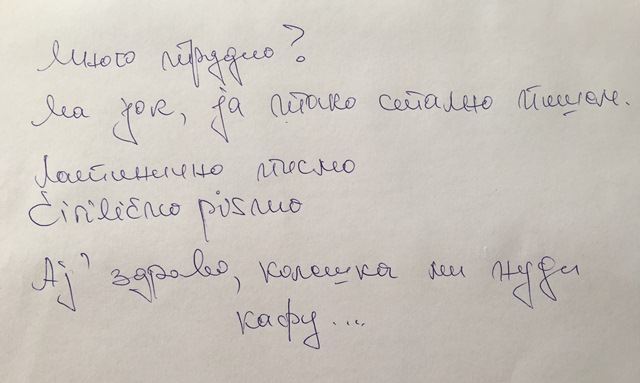 Много трудно?
Ма јок, ја тако стално пишем.
Латинично писмо
Ćirilično pismo
Ај' здраво, колешка ми нуди
кафу...